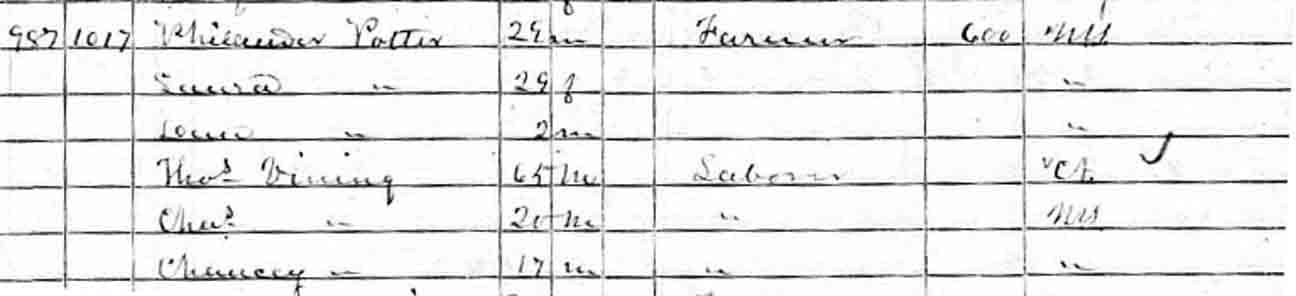 987 1017 Philander Potter 29 m Farmer 600 NY.
Laura " 29 f "
" 2 m "
Thos Vining 65 m Laborer Ct.
Chas " 20 m " NY
Chancey " 17 m " "